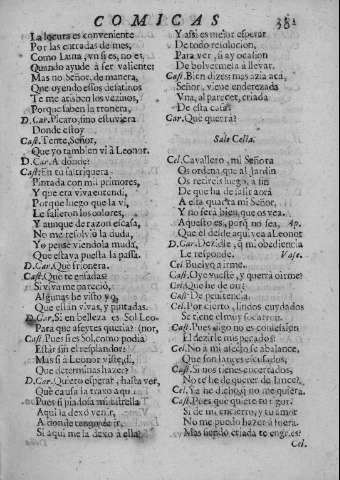 COMICAS
381
La locura es conveniente
Por las entradas de mes,
Como Luna, un si es, no es,
Quando ayude à ser valiente:
Mas no Señor, de manera,
Que oyendo essos desatinos
Te me atisben los vezinos,
Porque saben la tronera,
D.Car. Picaro, sino estuviera
Donde estoy
Cast. Tente, Señor,
Que yo tambien vi à Leonor.
D.Car. A donde?
Cast. En tu faltriquera
Pintada con mil primores,
Y que era viva entendi,
Porque luego que la vi,
Le salieron los colores,
Y aunque de razon escasa,
No me resolviò la duda,
Yo pensè viendola muda,
Que estava puesta la passa.
D.Car. Què frionera.
Cast. Què te enfadas?
Si viva me pareciò,
Algunas he visto yo,
Que estàn vivas, y pintadas.
D.Car. Si en belleza es Sol Leo-
Para que afeytes queria? (nor,
Cast. Pues si es Sol, como podia
Estàr sin el resplandor?
Mas si à Leonor viste, di,
Que determinas hazer?
D.Car. Quiero esperar, hasta ver,
Què causa la traxo aqui.
Pues si piadosa mi estrella
Aqui la dexò venir,
A donde tengo de ir,
Si aqui me la dexò à ella?
Y assi es mejor esperar
De todo resolucion,
Para ver, si ay ocasion
De bolvermela à llevar.
Cast. Bien dizes; mas azia acà,
Señor, viene enderezada
Una, al parecer, criada
De esta casa.
Car. Què querrà?
Sale Celia.
Cel. Cavallero, mi Señora
Os ordena, que al jardin
Os retireis luego, à fin
De que ha de salir aora
A esta quadra mi Señor,
Y no serà bien, que os vea. Ap.
Aquesto es, porque no sea,
Que èl desde aqui vea à Leonor
D.Car. Dezidle, q̃ mi obediencia
Le responde. Vase.
Cel. Buelvo à irme.
Cast. Oye usted, y querrà oirme?
Cel. Què he de oir?
Cast. De penitencia.
Cel. Por cierto, lindos cuydados
Se tiene el muy socarron.
Cast. Pues digo, no es confession
El dezirle mis pecados?
Cel. No à mi afecto se abalance,
Que son lances escusados,
Cast. Si nos tienes encerrados,
No te he de querer de lance?
Cel. Ya he dicho, q̃ no me quiera.
Cast. Pues què quiere tu rigor,
Si de mi encierro, y tu amor
No me puedo hazer à fuera.
Mas siendo criada te engries?
Cel.